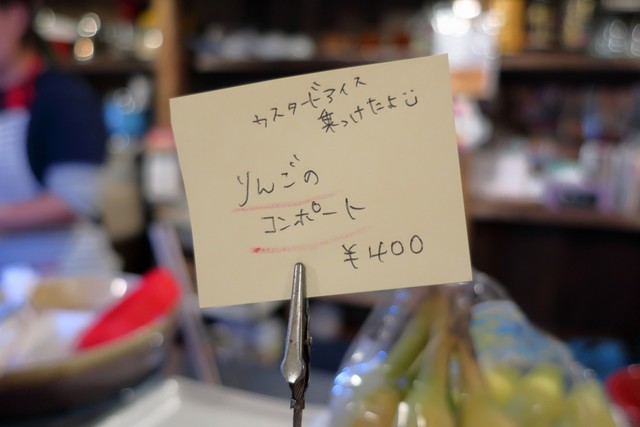 カスタードアイス
乗っけたよ
りんごの
コンポート
¥400